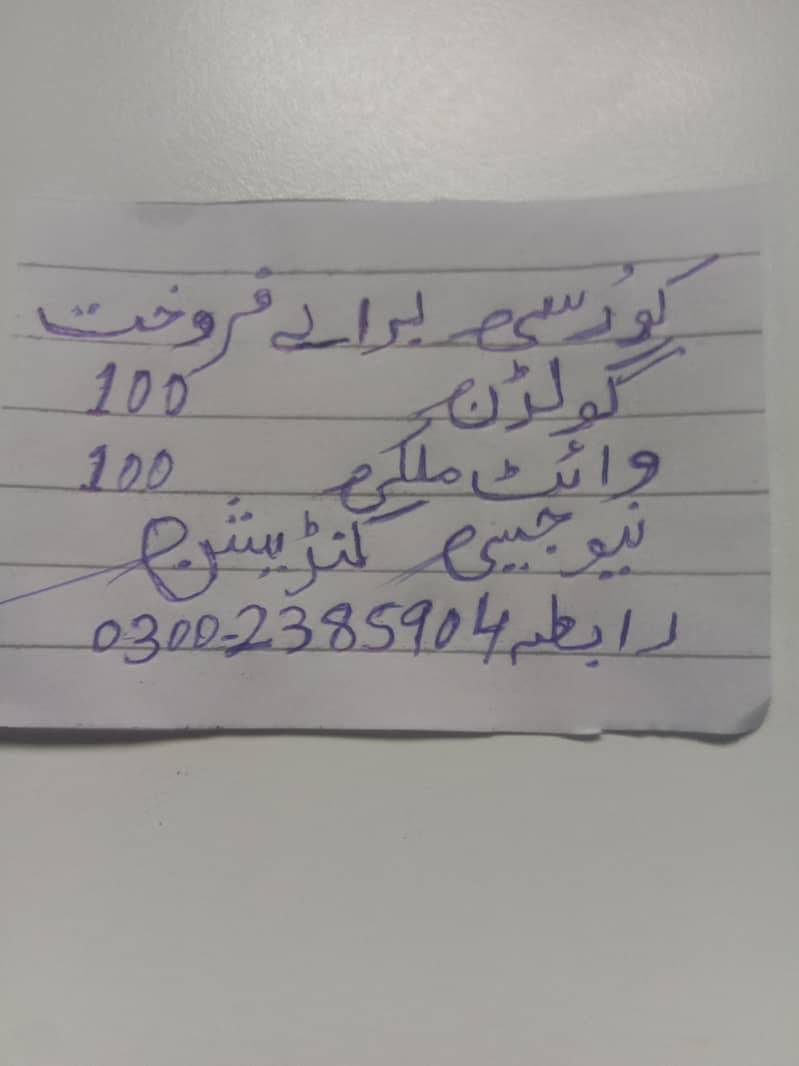 کوُرسی برائے فروخت
گولڈن 100
وائٹ ملکی 100
نیو جیسی کنڈیشن
رابطہ 0300-2385904